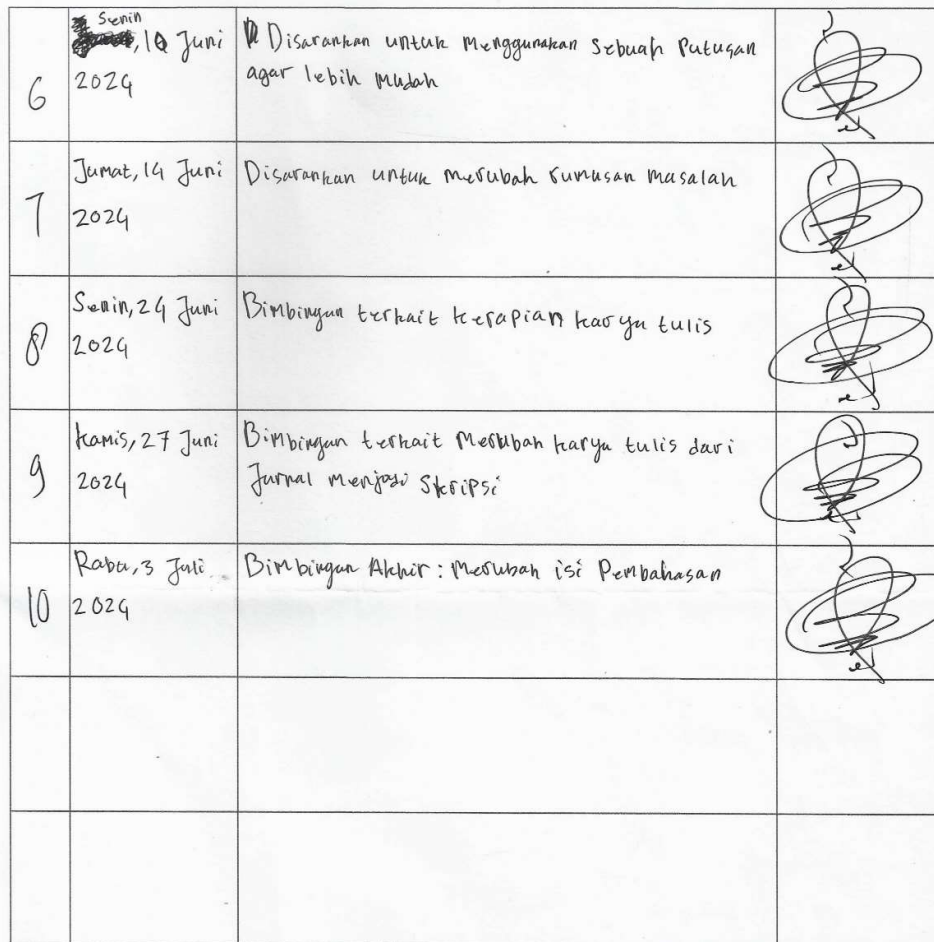 Senin
, 10 Juni
2024
6
Disarankan untuk menggunakan sebuah Putusan
agar lebih mudah
Jumat, 14 Juni
2024
7
Disarankan untuk merubah rumusan masalah
Senin, 24 Juni
2024
8
Bimbingan terkait kerapian karya tulis
Kamis, 27 Juni
2024
9
Bimbingan terkait Merubah karya tulis dari
Jurnal menjadi Skripsi
Rabu, 3 Juli
2024
10
Bimbingan Akhir : Merubah isi Pembahasan